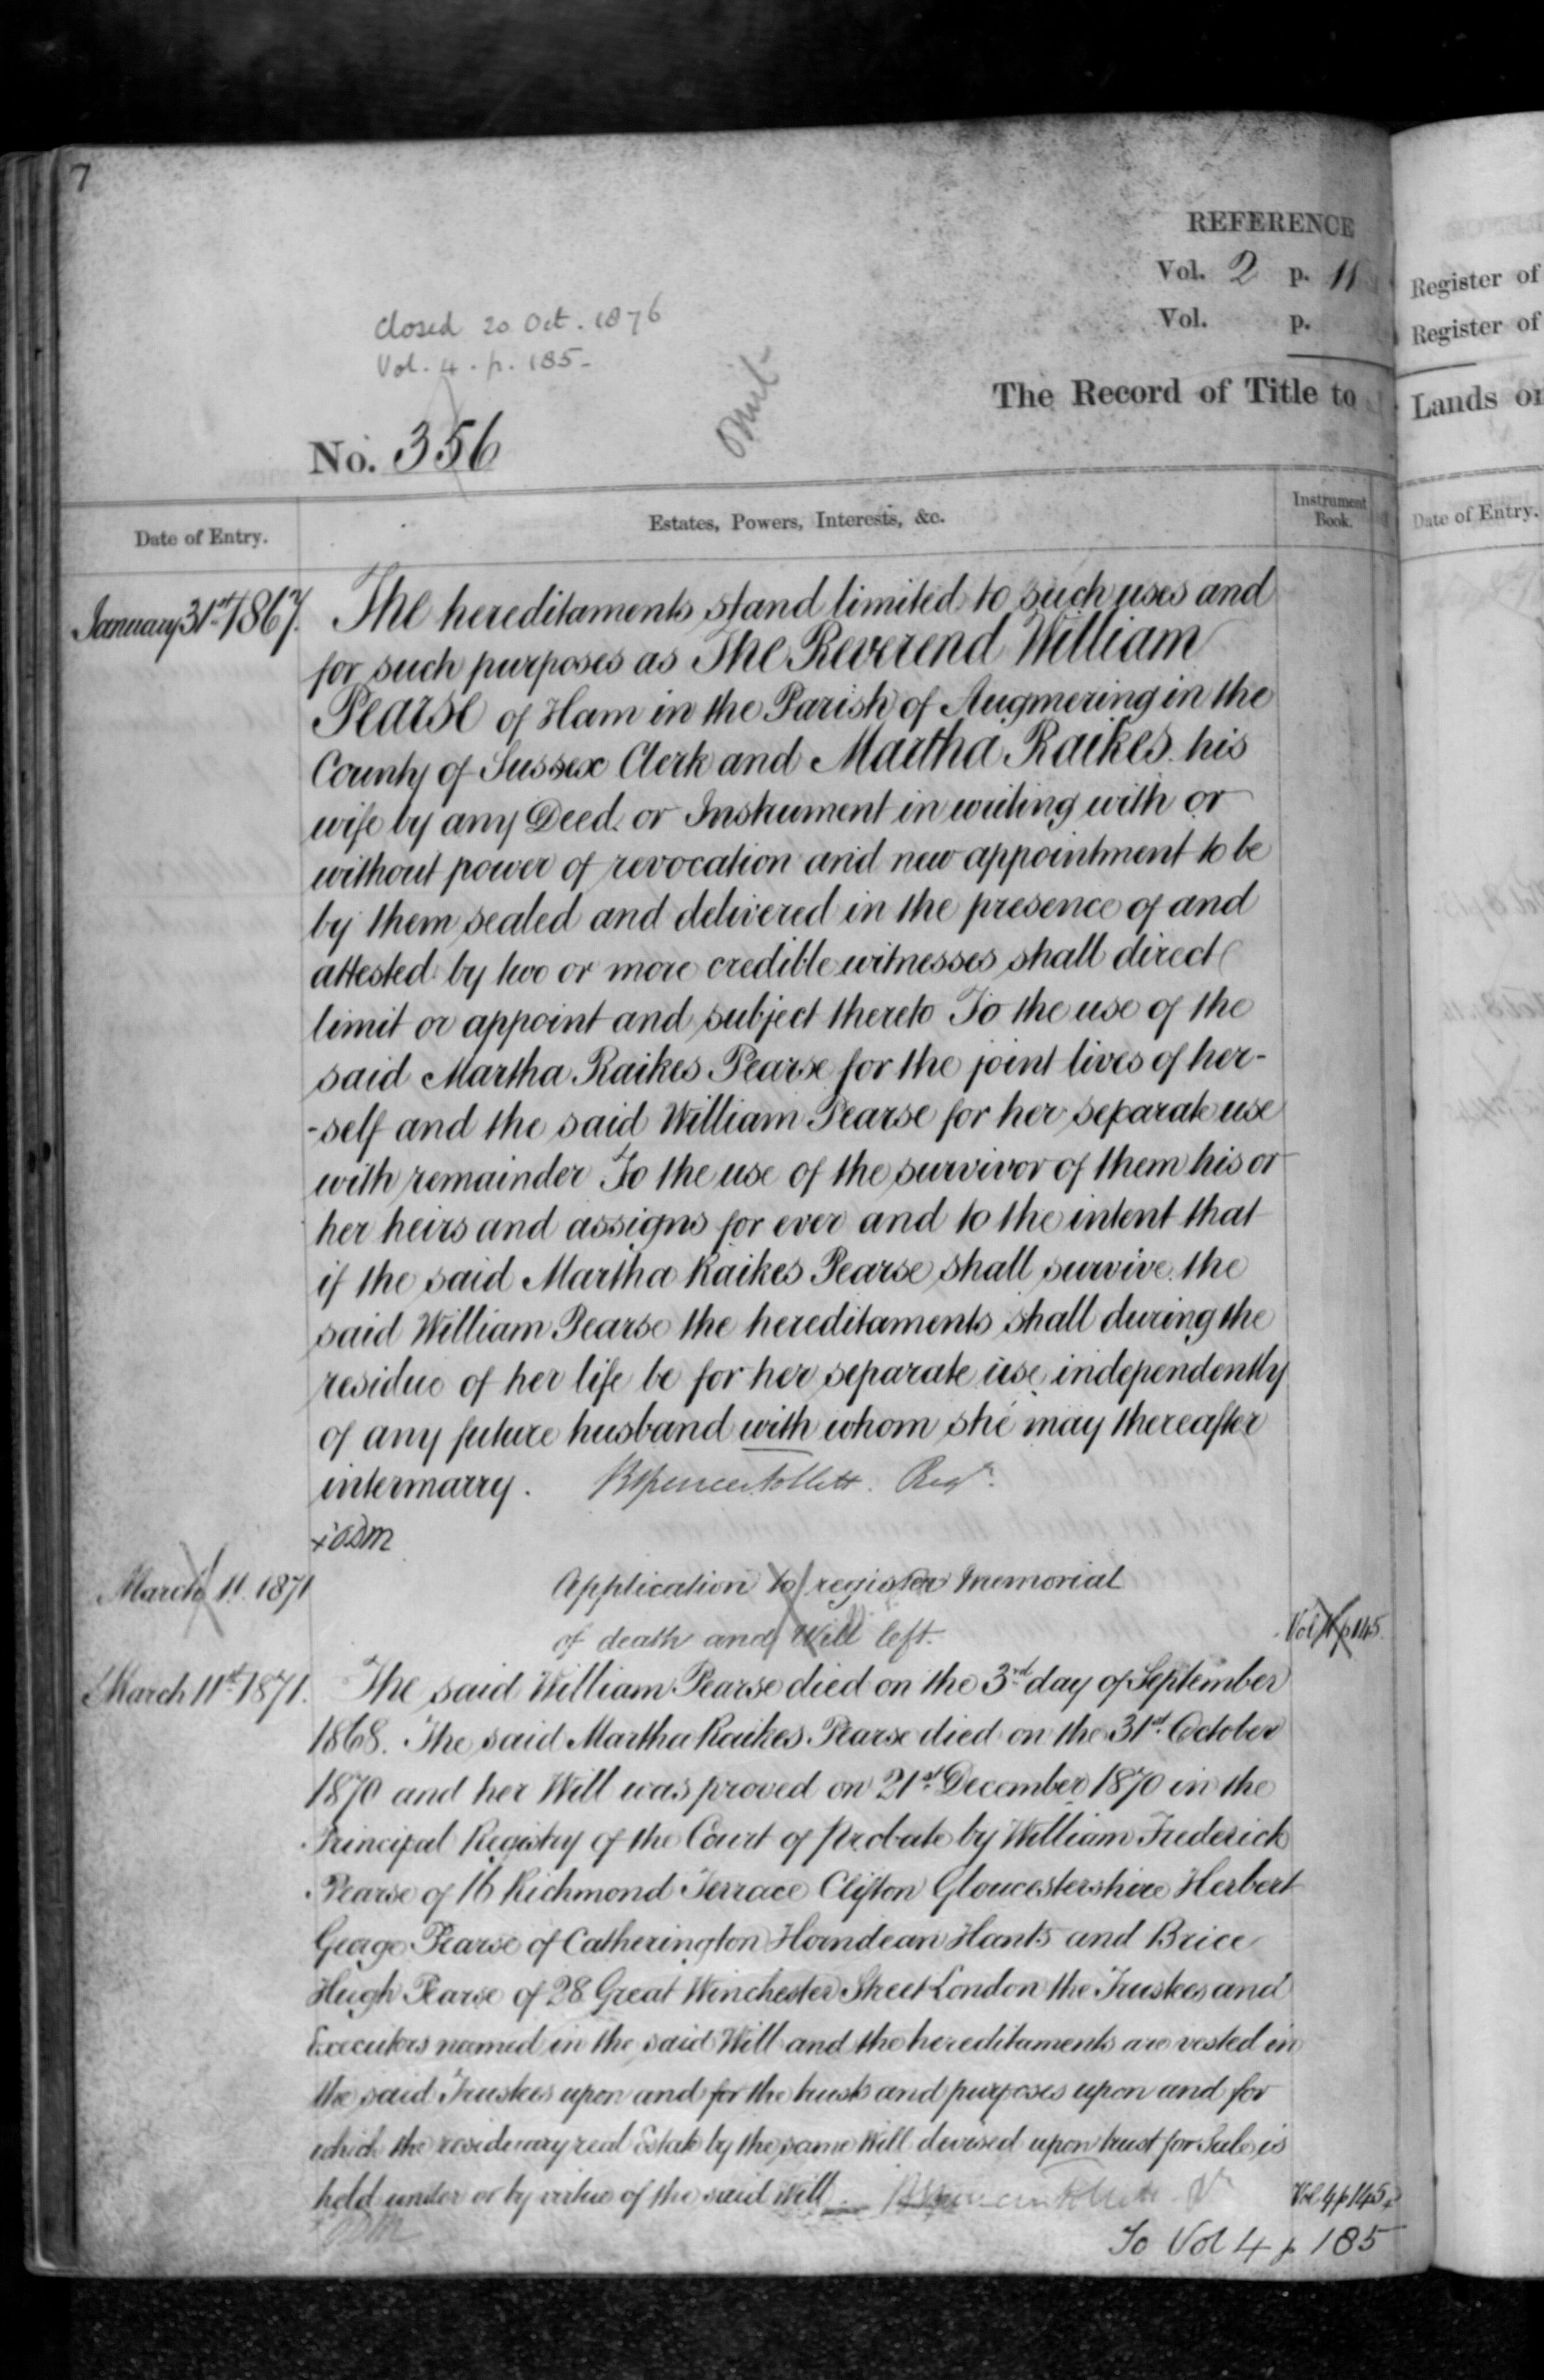 7
REFERENCE
Vol. 2 p. 11
Vol. p.
Closed 20 Oct. 1876
Vol. 4. p. 185-
Omit
The Record of Title to
No. 356
Date of Entry.
Estates, Powers, Interests, &c.
Instrument
Book.
January 31st 1867. The hereditaments stand limited to such uses and
for such purposes as The Reverend William
Pearse of Ham in the Parish of Augmering in the
County of Sussex Clerk and Martha Raikes his
wife by any Deed or Instrument in writing with or
without power of revocation and new appointment to be
by them sealed and delivered in the presence of and
attested by two or more credible witnesses shall direct
limit or appoint and subject thereto To the use of the
said Martha Raikes Pearse for the joint lives of her-
-self and the said William Pearse for her separate use
with remainder To the use of the survivor of them his or
her heirs and assigns for ever and to the intent that
if the said Martha Raikes Pearse shall survive the
said William Pearse the hereditaments shall during the
residue of her life be for her separate use independently
of any future husband with whom she may thereafter
intermarry. Regr.
March 11. 1871 Application to register Memorial
of death and Will left. Vol 4 p 145.
March 11th 1871. The said William Pearse died on the 3rd day of September
1868. The said Martha Raikes Pearse died on the 31st October
1870 and her Will was proved on 21st December 1870 in the
Principal Registry of the Court of Probate by William Frederick
Pearse of 16 Richmond Terrace Clifton Gloucestershire Herbert
George Pearse of Catherington Horndean Hants and Brice
Hugh Pearse of 28 Great Winchester Street London the Trustees and
Executors named in the said Will and the hereditaments are vested in
the said Trustees upon and for the trusts and purposes upon and for
which the residuary real Estate by the same Will devised upon trust for Sale is
held under or by virtue of the said Will. Vol. 4 p 145.
To Vol 4 p 185
Register of
Register of
Lands or
Date of Entry.